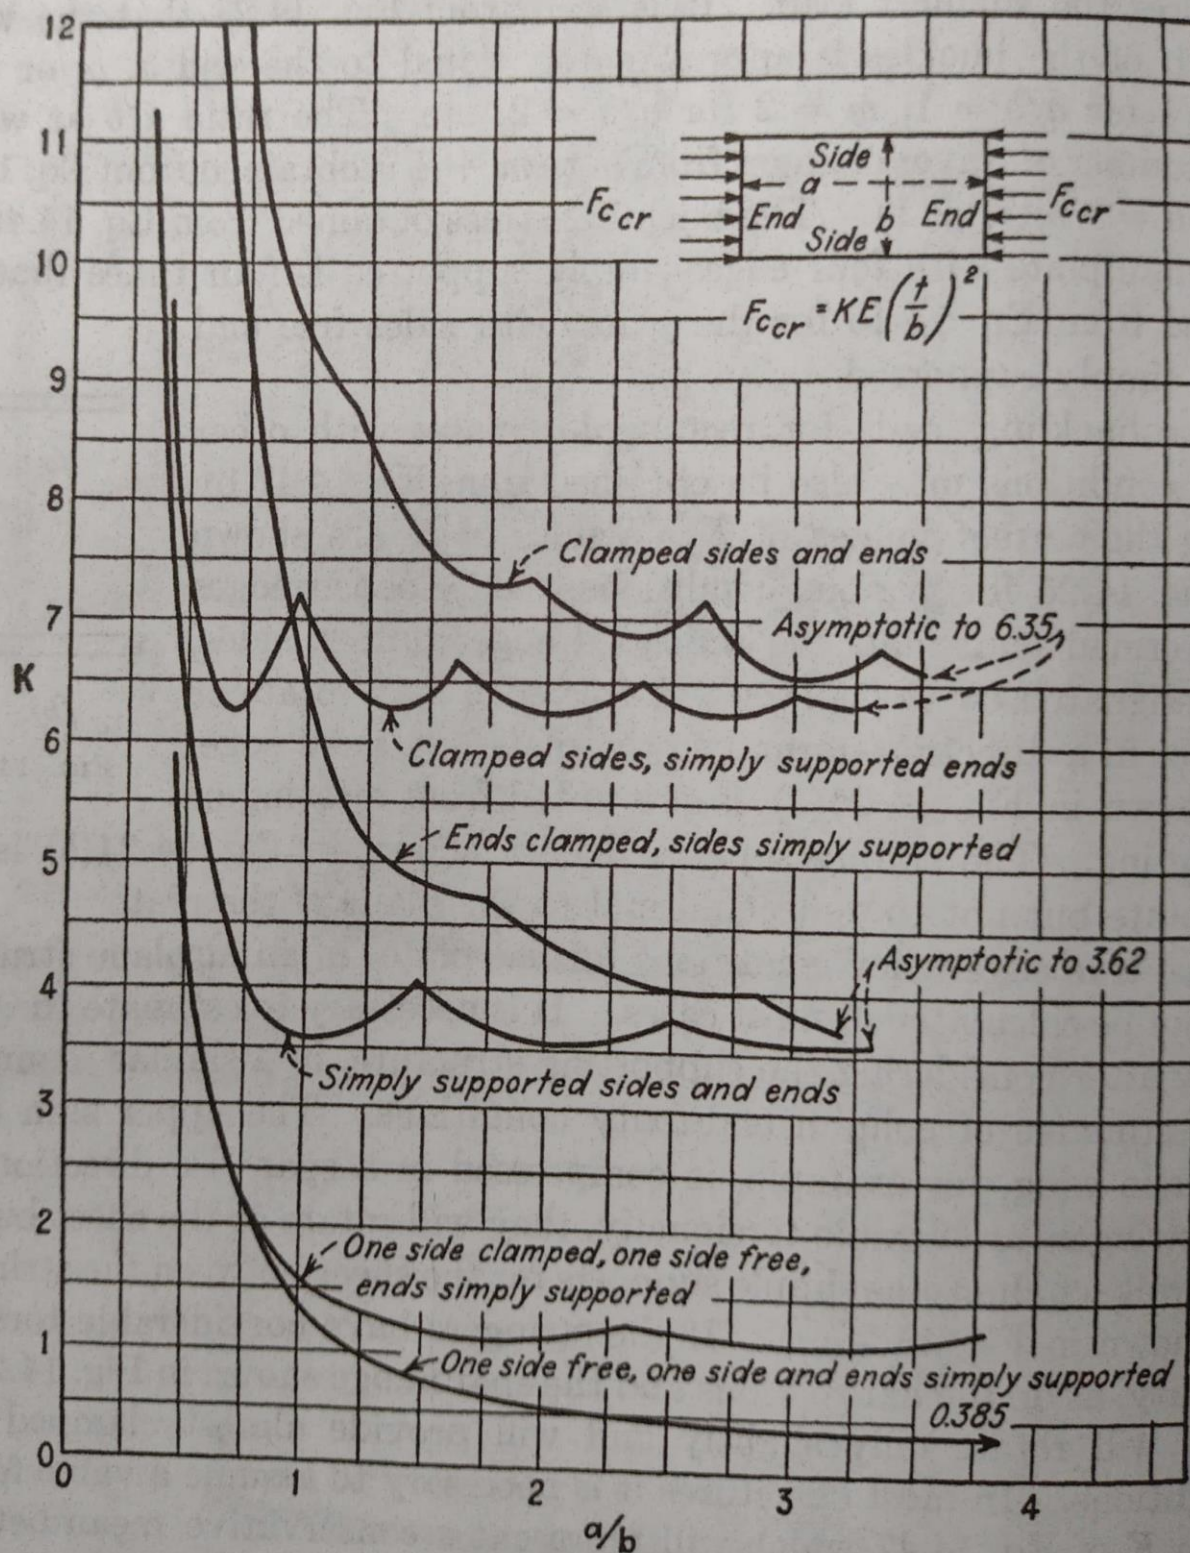 12
11
10
9
8
7
K
6
5
4
3
2
1
0
Side
a
F_c cr
End
b
End
F_c cr
Side
F_c cr = KE(t/b)²
Clamped sides and ends
Asymptotic to 6.35
Clamped sides, simply supported ends
Ends clamped, sides simply supported
Asymptotic to 3.62
Simply supported sides and ends
One side clamped, one side free,
ends simply supported
One side free, one side and ends simply supported
0.385
0
1
2
3
4
a/b